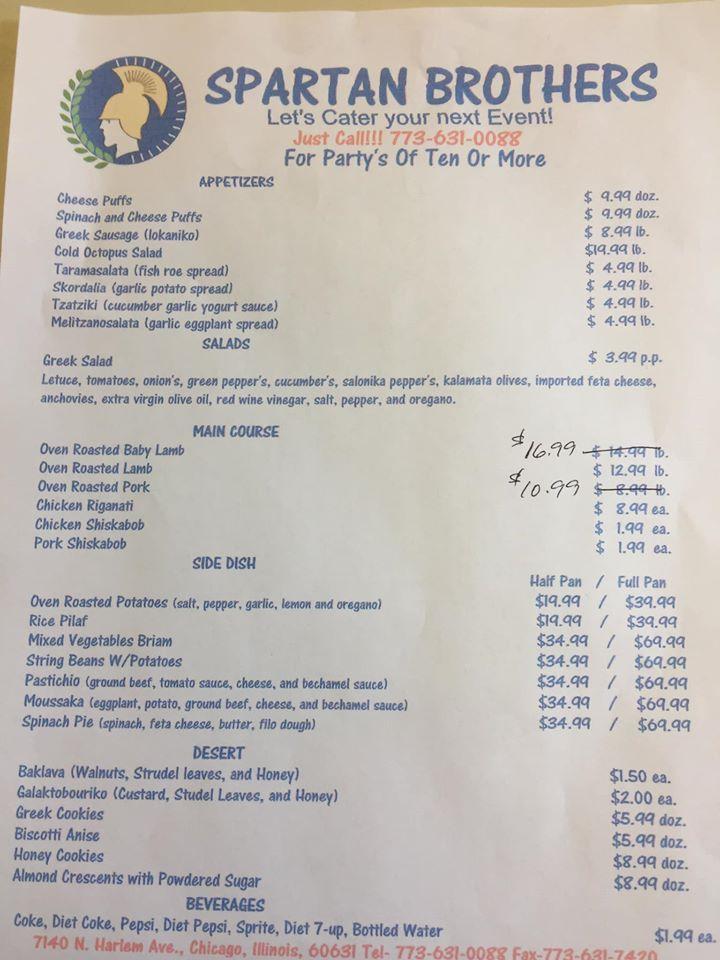 SPARTAN BROTHERS
Let's Cater your next Event!
Just Call!!! 773-631-0088
For Party's Of Ten Or More
APPETIZERS
Cheese Puffs $ 9.99 doz.
Spinach and Cheese Puffs $ 9.99 doz.
Greek Sausage (lokaniko) $ 8.99 lb.
Cold Octopus Salad $19.99 lb.
Taramasalata (fish roe spread) $ 4.99 lb.
Skordalia (garlic potato spread) $ 4.99 lb.
Tzatziki (cucumber garlic yogurt sauce) $ 4.99 lb.
Melitzanosalata (garlic eggplant spread) $ 4.99 lb.
SALADS
Greek Salad $ 3.99 p.p.
Letuce, tomatoes, onion's, green pepper's, cucumber's, salonika pepper's, kalamata olives, imported feta cheese,
anchovies, extra virgin olive oil, red wine vinegar, salt, pepper, and oregano.
MAIN COURSE
Oven Roasted Baby Lamb $16.99 $ 14.99 lb.
Oven Roasted Lamb $ 12.99 lb.
Oven Roasted Pork $10.99 $ 8.99 lb.
Chicken Riganati $ 8.99 ea.
Chicken Shiskabob $ 1.99 ea.
Pork Shiskabob $ 1.99 ea.
SIDE DISH
Half Pan / Full Pan
Oven Roasted Potatoes (salt, pepper, garlic, lemon and oregano) $19.99 / $39.99
Rice Pilaf $19.99 / $39.99
Mixed Vegetables Briam $34.99 / $69.99
String Beans W/Potatoes $34.99 / $69.99
Pastichio (ground beef, tomato sauce, cheese, and bechamel sauce) $34.99 / $69.99
Moussaka (eggplant, potato, ground beef, cheese, and bechamel sauce) $34.99 / $69.99
Spinach Pie (spinach, feta cheese, butter, filo dough) $34.99 / $69.99
DESERT
Baklava (Walnuts, Strudel leaves, and Honey) $1.50 ea.
Galaktobouriko (Custard, Studel Leaves, and Honey) $2.00 ea.
Greek Cookies $5.99 doz.
Biscotti Anise $5.99 doz.
Honey Cookies $8.99 doz.
Almond Crescents with Powdered Sugar $8.99 doz.
BEVERAGES
Coke, Diet Coke, Pepsi, Diet Pepsi, Sprite, Diet 7-up, Bottled Water $1.99 ea.
7140 N. Harlem Ave., Chicago, Illinois, 60631 Tel- 773-631-0088 Fax-773-631-7420